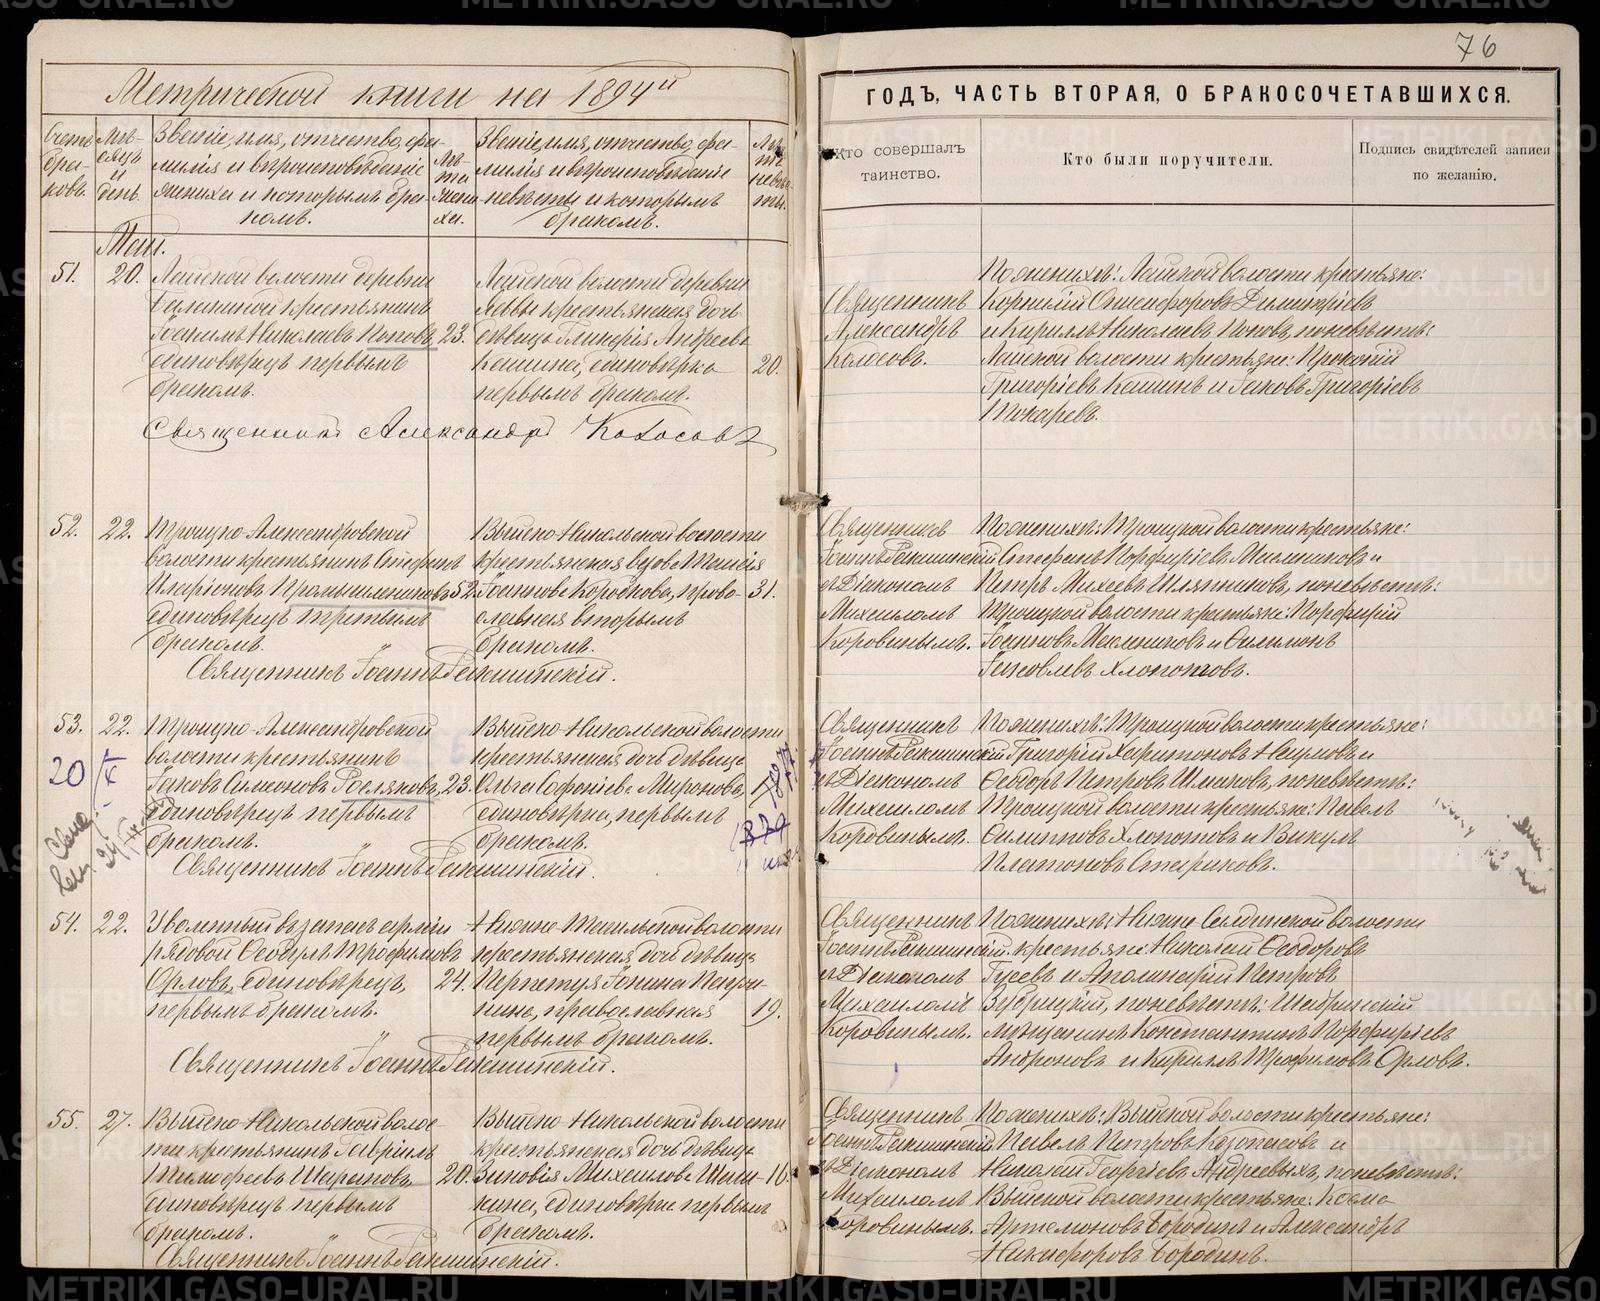 76
Метрической книги на 1894й
ГОДЪ, ЧАСТЬ ВТОРАЯ, О БРАКОСОЧЕТАВШИХСЯ.
Счетъ браковъ.
Мѣсяцъ и день.
Званіе, имя, отчество, фамилія и вѣроисповѣданіе жениха и которымъ бракомъ.
Лѣта жениха.
Званіе, имя, отчество, фамилія и вѣроисповѣданіе невѣсты и которымъ бракомъ.
Лѣта невѣсты.
Кто совершалъ
таинство.
Кто были поручители.
Подпись свидѣтелей записи
по желанію.
Май.
51.
20.
Лайской волости деревни
крестьянинъ
Іоакимъ Николаевъ Поповъ,
единовѣрецъ первымъ
бракомъ.
23.
Лайской волости деревни
крестьянская дочь
дѣвица Гликерія Андреева
Кашина, единовѣрка
первымъ бракомъ.
20.
Священникъ
Александръ
Колосовъ.
По женихѣ: Лайской волости крестьяне:
Корнилій Онисифоровъ Димитріевъ
и Кириллъ Николаевъ Поповъ, по невѣстѣ:
Лайской волости крестьяне: Прокопій
Григоріевъ Кашинъ и Іаковъ Григоріевъ
Токаревъ.
Священникъ Александръ Колосовъ
52.
22.
Троицко-Александровской
волости крестьянинъ Стефанъ
Иларіоновъ Промышлениковъ
единовѣрецъ третьимъ
бракомъ.
52.
Выйско-Никольской волости
крестьянская вдова Таисія
Іоаннова Короткова, право-
славная вторымъ
бракомъ.
31.
Священникъ
съ Діакономъ
Михаиломъ
Коровинымъ.
По женихѣ: Троицкой волости крестьяне:
Стефанъ Порфиріевъ Масленниковъ и
Петръ Михеевъ Шляпниковъ, по невѣстѣ:
Троицкой волости крестьяне: Порфирій
Іоанновъ Масленниковъ и Филимонъ
Іаковлевъ Хлопотовъ.
Священникъ Іоаннъ
53.
22.
20/X
Троицко-Александровской
волости крестьянинъ
Іаковъ Симеоновъ Росляковъ,
единовѣрецъ первымъ
бракомъ.
23.
Выйско-Никольской волости
крестьянская дочь дѣвица
Ольга Софоніева Миронова,
единовѣрка, первымъ
бракомъ.
Священникъ
съ Діакономъ
Михаиломъ
Коровинымъ.
По женихѣ: Троицкой волости крестьяне:
Григорій Харитоновъ Наумовъ и
Ѳеодоръ Петровъ Шмаковъ, по невѣстѣ:
Троицкой волости крестьяне: Павелъ
Филиповъ Хлопотовъ и Викулъ
Платоновъ Стариковъ.
Священникъ Іоаннъ
54.
22.
Уволенный въ запасъ арміи
рядовой Ѳеодулъ Трофимовъ
Орловъ, единовѣрецъ,
первымъ бракомъ.
24.
Нижне-Тагильской волости
крестьянская дочь дѣвица
Перпетуя Іонина
православная
первымъ бракомъ.
19.
Священникъ
съ Діакономъ
Михаиломъ
Коровинымъ.
По женихѣ: Нижне-Салдинской волости
крестьяне: Николай Ѳеодоровъ
Гусевъ и Аполинарій Петровъ
Зубрицкій, по невѣстѣ: Шадринскій
мѣщанинъ Константинъ Порфиріевъ
Андроновъ и Кириллъ Трофимовъ Орловъ.
Священникъ Іоаннъ
55.
27.
Выйско-Никольской волос
ти крестьянинъ Гавріилъ
Тимофеевъ Шариповъ
единовѣрецъ первымъ
бракомъ.
20.
Выйско-Никольской волости
крестьянская дочь дѣвица
Зиновія Михаилова
единовѣрка первымъ
бракомъ.
16.
Священникъ
съ Діакономъ
Михаиломъ
Коровинымъ.
По женихѣ: Выйской волости крестьяне:
Павелъ Петровъ Карпасовъ и
Николай Георгіевъ Андреевыхъ, по невѣстѣ:
Выйской волости крестьяне: Косма
Артемоновъ Бородинъ и Александръ
Никифоровъ Бородинъ.
Священникъ Іоаннъ
METRIKI.GASO-URAL.RU